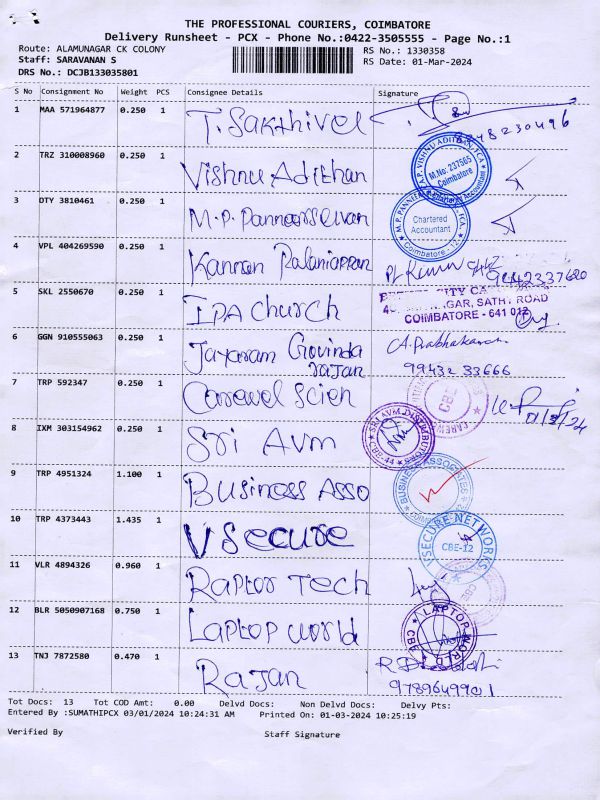 THE PROFESSIONAL COURIERS, COIMBATORE
Delivery Runsheet - PCX - Phone No.:0422-3505555 - Page No.:1
Route: ALAMUNAGAR CK COLONY RS No.: 1330358
Staff: SARAVANAN S RS Date: 01-Mar-2024
DRS No.: DCJB133035801
S No Consignment No Weight PCS Consignee Details Signature
1 MAA 571964877 0.250 1 T. Sakthivel
2 TRZ 310008960 0.250 1 Vishnu Adithan
M.No: 237565
Coimbatore
Chartered Accountant
3 DTY 3810461 0.250 1 M.P. Panneerselvan
Chartered
Accountant
Coimbatore - 12
4 VPL 404269590 0.250 1 Kannan Palaniappan
5 SKL 2550670 0.250 1 IPA Church
CITY
GAR, SATHY ROAD
COIMBATORE - 641 012
6 GGN 910555063 0.250 1 Jayaram Govinda
rajan
99432 33666
7 TRP 592347 0.250 1 Carewel Scien
8 IXM 303154962 0.250 1 Sri Avm
SRI AVM DISTRIBUTORS
CBE-44
9 TRP 4951324 1.100 1 Business Asso
BUSINESS ASSOCIATES
10 TRP 4373443 1.435 1 V Secure
VSECURE NETWORKS
CBE-12
11 VLR 4894326 0.960 1 Raptor Tech
12 BLR 5050907168 0.750 1 Laptop world
LAPTOP WORLD
CBE
13 TNJ 7872580 0.470 1 Rajan
Tot Docs: 13 Tot COD Amt: 0.00 Delvd Docs: Non Delvd Docs: Delvy Pts:
Entered By :SUMATHIPCX 03/01/2024 10:24:31 AM Printed On: 01-03-2024 10:25:19
Verified By Staff Signature